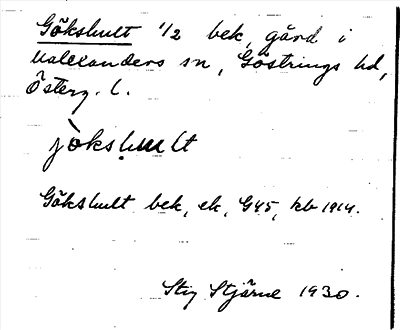 Gökshult 1/2 bek, gård i
Valexanders sn, Göstrings hd,
Österg. l.
jòkshult
Gökshult bek, ek, G45, kb 1914.
Stig Stjärne 1930.